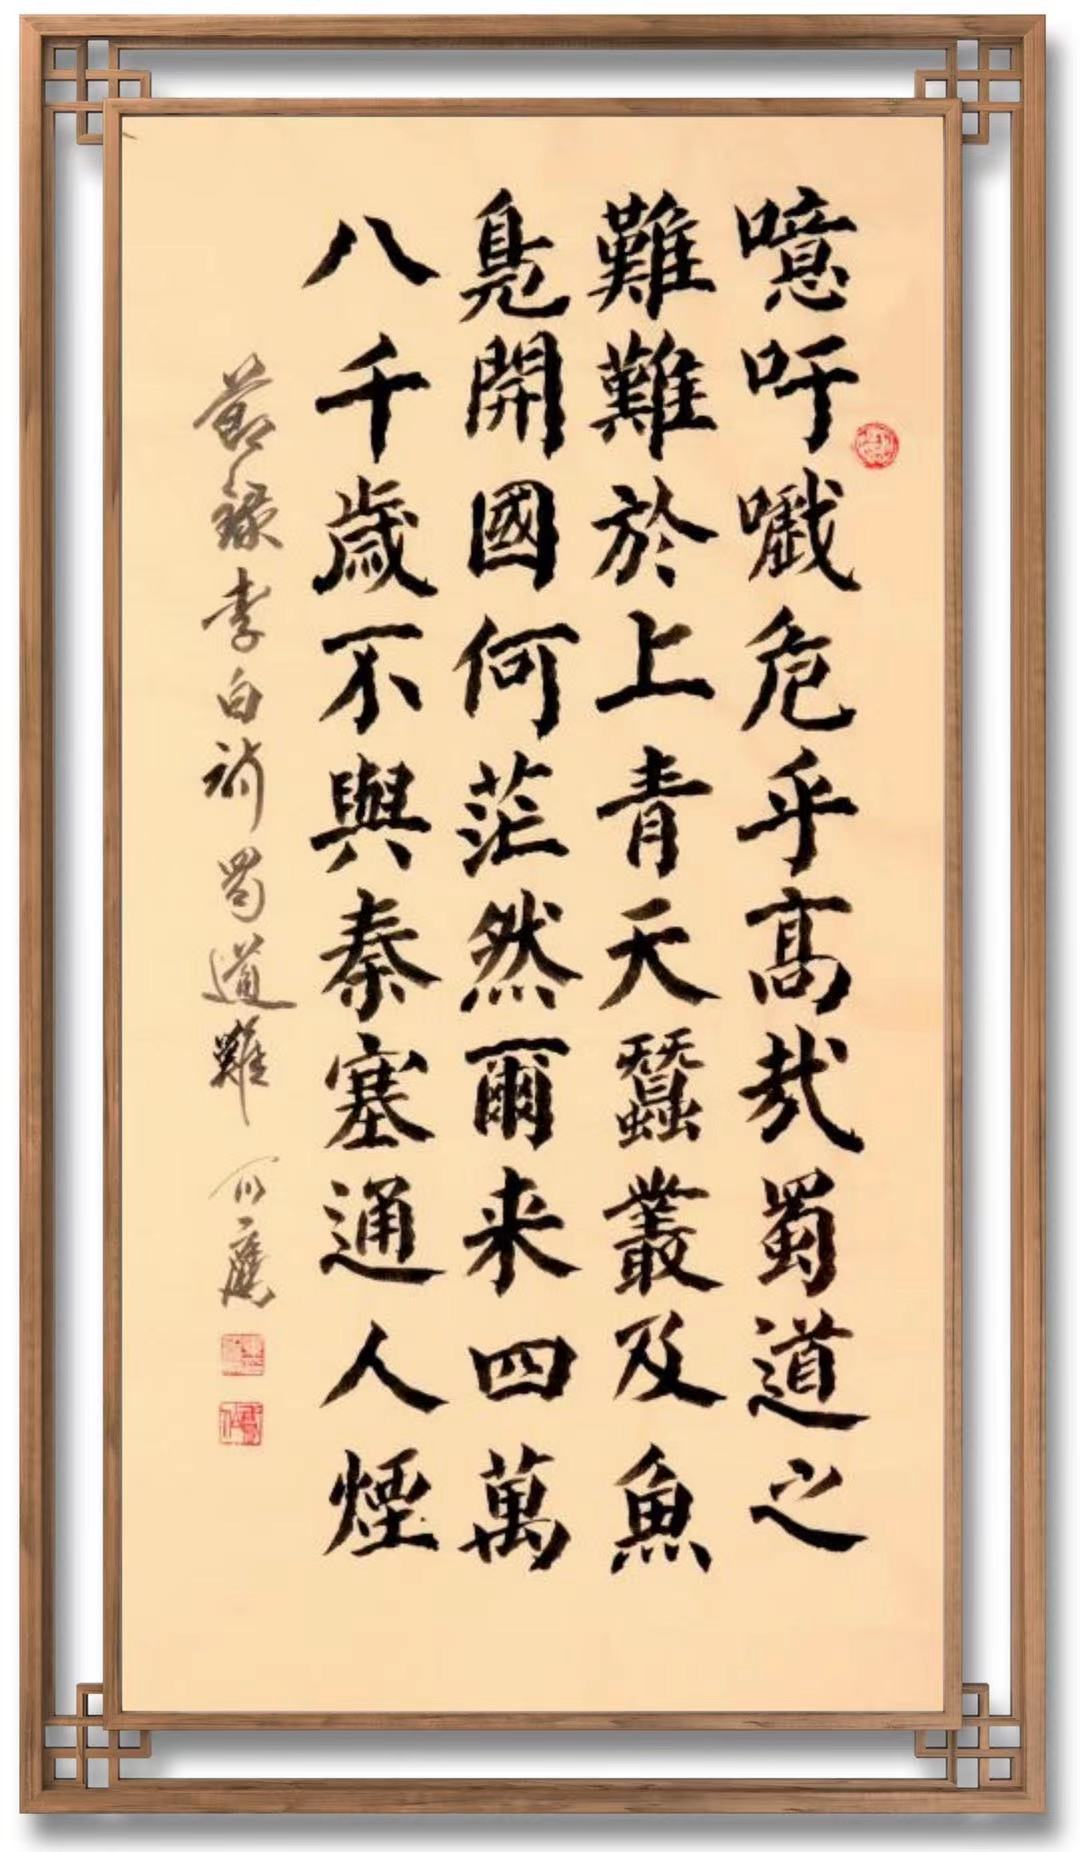 噫吁嚱危乎髙哉蜀道之
難難於上青天蠶叢及魚
鳧開國何茫然爾来四萬
八千歲不與秦塞通人煙
節錄李白詩蜀道難